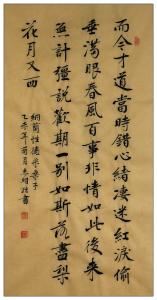 而今才道當時錯心緒淒迷紅淚偷
垂滿眼春風百事非情知此後來
無計彊說歡期一別如斯落盡梨
花月又西
納蘭性德采桑子
乙未年 月 書